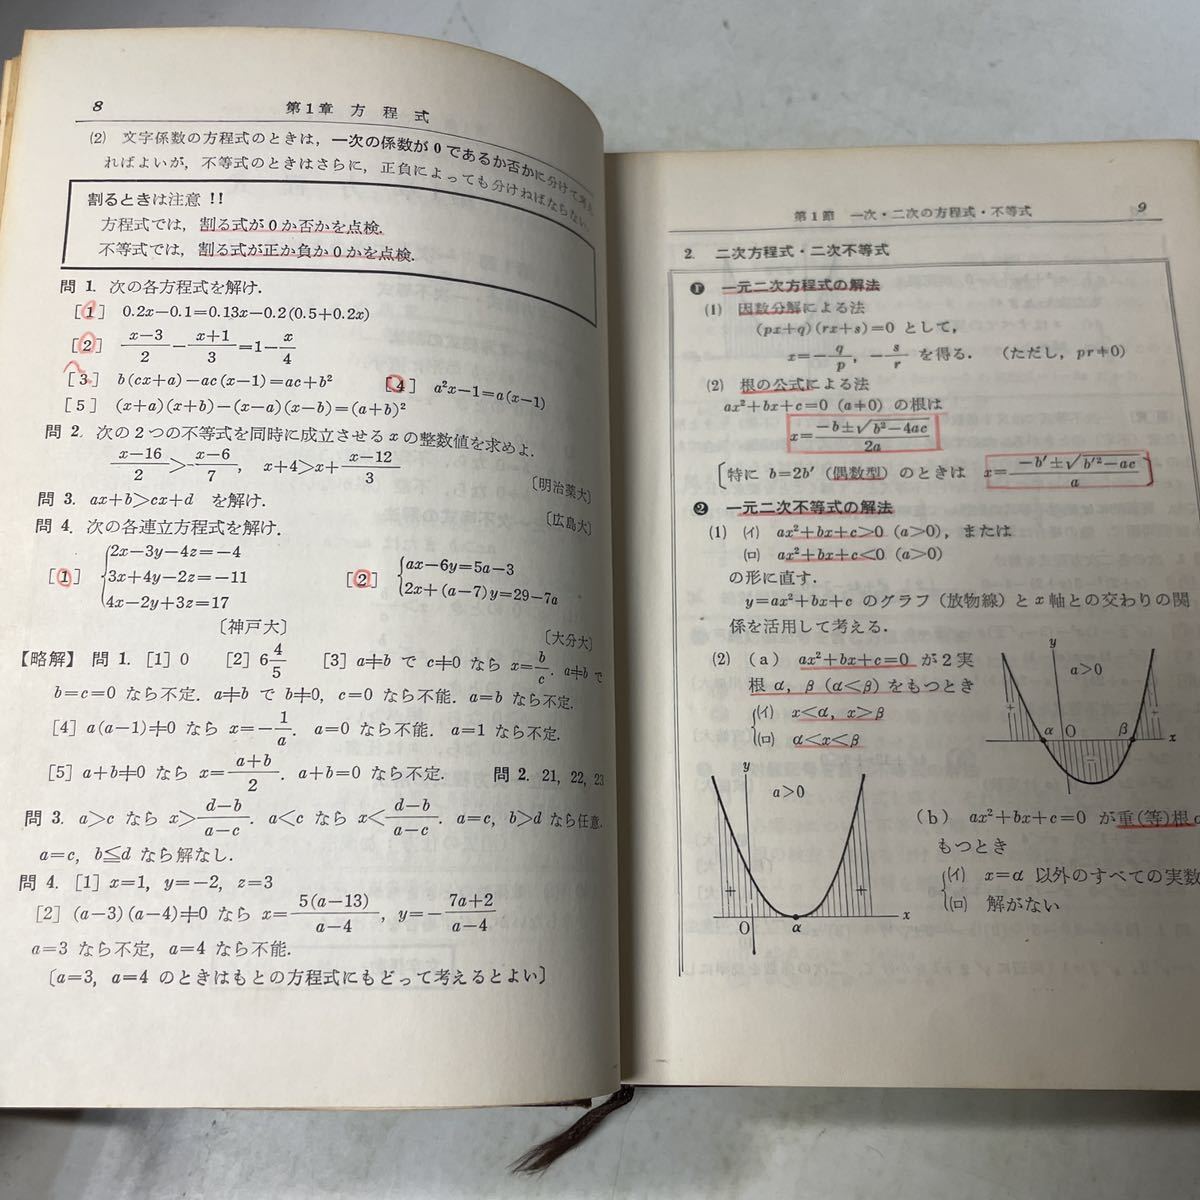 8
第1章 方程式
(2) 文字係数の方程式のときは，一次の係数が0であるか否かに分けて考え
ればよいが，不等式のときはさらに，正負によっても分けねばならない．
割るときは注意!!
方程式では，割る式が0か否かを点検．
不等式では，割る式が正か負か0かを点検．
問 1. 次の各方程式を解け．
[1] 0.2x−0.1=0.13x−0.2(0.5+0.2x)
[2] (x−3)/2−(x+1)/3=1−x/4
[3] b(cx+a)−ac(x−1)=ac+b² [4] a²x−1=a(x−1)
[5] (x+a)(x+b)−(x−a)(x−b)=(a+b)²
問 2. 次の2つの不等式を同時に成立させるxの整数値を求めよ．
(x−16)/2>(x−6)/7, x+4>x+(x−12)/3
〔明治薬大〕
問 3. ax+b>cx+d を解け．
〔広島大〕
問 4. 次の各連立方程式を解け．
[1] {2x−3y−4z=−4
3x+4y−2z=−11
4x−2y+3z=17
〔神戸大〕
[2] {ax−6y=5a−3
2x+(a−7)y=29−7a
〔大分大〕
【略解】 問 1. [1] 0 [2] 6 4/5 [3] a≠b で c≠0 なら x=b/c. a≠b で
b=c=0 なら不定．a≠b で b≠0, c=0 なら不能．a=b なら不定．
[4] a(a−1)≠0 なら x=−1/a. a=0 なら不能．a=1 なら不定．
[5] a+b≠0 なら x=(a+b)/2. a+b=0 なら不定． 問 2. 21, 22, 23
問 3. a>c なら x>(d−b)/(a−c). a<c なら x<(d−b)/(a−c). a=c, b>d なら任意．
a=c, b≦d なら解なし．
問 4. [1] x=1, y=−2, z=3
[2] (a−3)(a−4)≠0 なら x=5(a−13)/(a−4), y=−(7a+2)/(a−4)
a=3 なら不定，a=4 なら不能．
〔a=3, a=4 のときはもとの方程式にもどって考えるとよい〕
第1節 一次・二次の方程式・不等式
9
2. 二次方程式・二次不等式
❶ 一元二次方程式の解法
(1) 因数分解による法
(px+q)(rx+s)=0 として，
x=−q/p, −s/r を得る．（ただし，pr≠0）
(2) 根の公式による法
ax²+bx+c=0 (a≠0) の根は
x=(−b±√(b²−4ac))/2a
〔特に b=2b′（偶数型）のときは x=(−b′±√(b′²−ac))/a〕
❷ 一元二次不等式の解法
(1) (イ) ax²+bx+c>0 (a>0)，または
(ロ) ax²+bx+c<0 (a>0)
の形に直す．
y=ax²+bx+c のグラフ（放物線）とx軸との交わりの関
係を活用して考える．
(2) (a) ax²+bx+c=0 が2実
根 α, β (α<β) をもつとき
{(イ) x<α, x>β
(ロ) α<x<β
y
a>0
+
+
−
α
O
β
x
y
a>0
+
+
O
α
x
(b) ax²+bx+c=0 が重(等)根α
もつとき
{(イ) x=α 以外のすべての実数
(ロ) 解がない